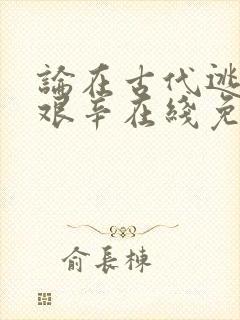 論在古代逃
艱辛在綫免
俞長棟